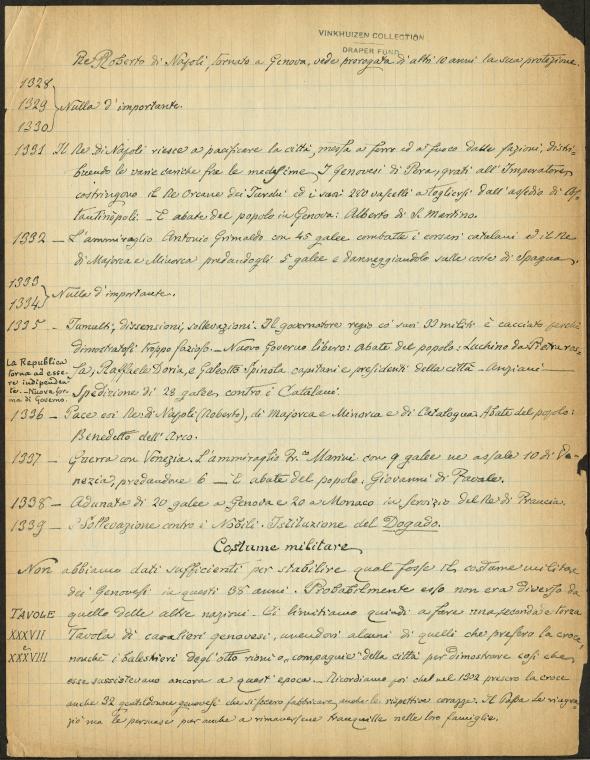 VINKHUIZEN COLLECTION
DRAPER FUND
Re Roberto di Napoli, tornato a Genova, vede prorogata d'altri 10 anni la sua protezione.
1328
1329 Nulla d'importante.
1330
1331 Il Re di Napoli riesce a pacificare la città, messa a ferro ed a fuoco dalle fazioni, distri-
buendo le varie cariche fra le medesime. I Genovesi di Pera, grati all'Imperatore,
costringono il Re Orcane dei Turchi ed i suoi 280 vascelli a togliersi dall'assedio di Cos-
tantinopoli. - È abate del popolo in Genova: Alberto di S. Martino.
1332 - L'ammiraglio Antonio Grimaldo con 45 galee combatte i corsari catalani ed il Re
di Majorca e Minorca predandogli 5 galee e danneggiandolo sulle coste di Spagna.
1333
1334 Nulla d'importante.
1335 - Tumulti, dissensioni, sollevazioni. Il governatore regio co' suoi 33 militi è cacciato perchè
dimostratosi troppo fazioso. - Nuovo Governo libero: Abate del popolo: Luchino da Pietraros-
La Republica
torna ad esse-
re indipenden-
te. - Nuova for-
ma di Governo.
sa, Raffaele Doria, e Galeotto Spinola capitani e presidenti della città - Anziani -
Spedizione di 28 galee contro i Catalani.
1336 - Pace coi Re di Napoli (Roberto), di Majorca e Minorca e di Catalogna. Abate del popolo:
Benedetto dell'Arco.
1337 - Guerra con Venezia. L'ammiraglio Fr.co Marini con 9 galee ne assale 10 di Ve-
nezia, predandone 6 - È abate del popolo: Giovanni di Favale.
1338 - Adunata di 20 galee a Genova e 20 a Monaco in servizio del Re di Francia.
1339 - Sollevazione contro i Nobili. Istituzione del Dogado.
Costume militare
Non abbiamo dati sufficienti per stabilire qual fosse il costume militare
dei Genovesi in questi 38 anni. Probabilmente esso non era diverso da
quello delle altre nazioni. Ci limitiamo quindi a fare una seconda e terza
TAVOLE
XXXVII
e
XXXVIII
Tavola di cavalieri genovesi, unendovi alcuni di quelli che presero la croce,
nonchè i balestrieri degl'otto rioni o "compagnie" della città per dimostrare così che
esse sussistevano ancora a quest'epoca. - Ricordiamo poi che nel 1302 presero la croce
anche 32 gentildonne genovesi che si fecero fabbricare anche le rispettive corazze. Il Papa le ringra-
ziò ma le persuase pur anche a rimanersene tranquille nelle loro famiglie.